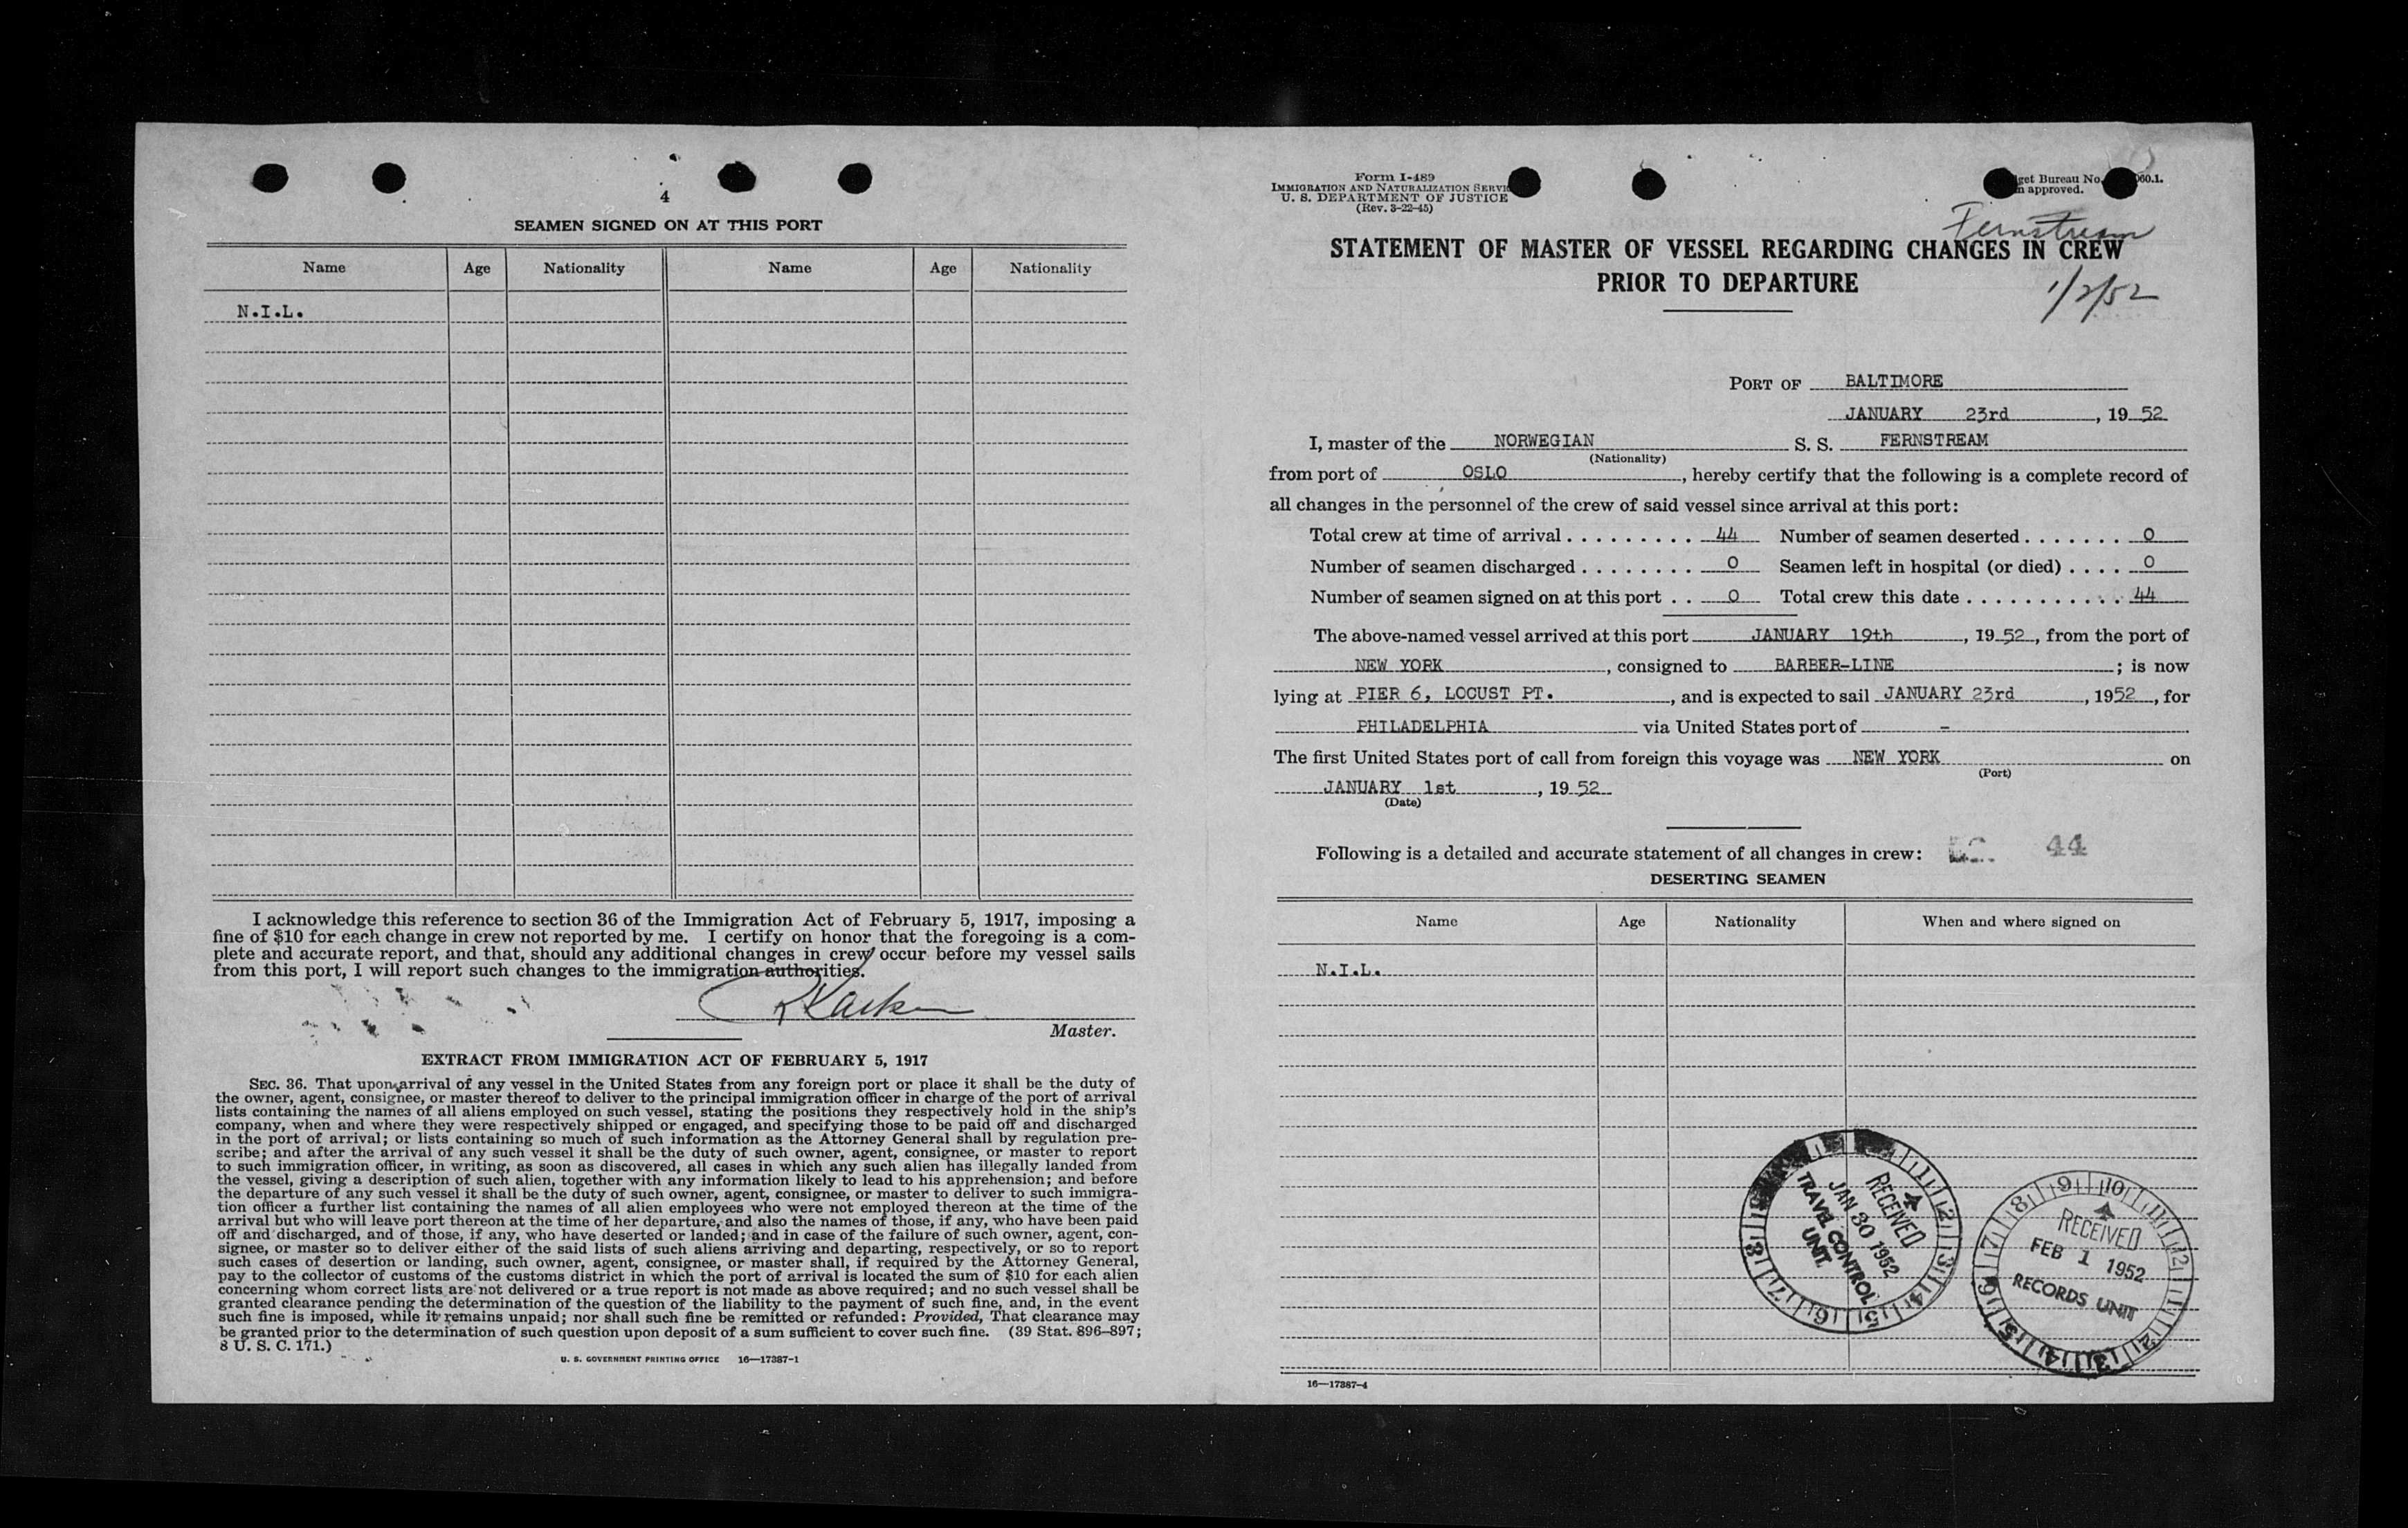 4
SEAMEN SIGNED ON AT THIS PORT
Name Age Nationality Name Age Nationality
N.I.L.
I acknowledge this reference to section 36 of the Immigration Act of February 5, 1917, imposing a
fine of $10 for each change in crew not reported by me. I certify on honor that the foregoing is a com-
plete and accurate report, and that, should any additional changes in crew occur before my vessel sails
from this port, I will report such changes to the immigration authorities.
Master.
EXTRACT FROM IMMIGRATION ACT OF FEBRUARY 5, 1917
SEC. 36. That upon arrival of any vessel in the United States from any foreign port or place it shall be the duty of
the owner, agent, consignee, or master thereof to deliver to the principal immigration officer in charge of the port of arrival
lists containing the names of all aliens employed on such vessel, stating the positions they respectively hold in the ship's
company, when and where they were respectively shipped or engaged, and specifying those to be paid off and discharged
in the port of arrival; or lists containing so much of such information as the Attorney General shall by regulation pre-
scribe; and after the arrival of any such vessel it shall be the duty of such owner, agent, consignee, or master to report
to such immigration officer, in writing, as soon as discovered, all cases in which any such alien has illegally landed from
the vessel, giving a description of such alien, together with any information likely to lead to his apprehension; and before
the departure of any such vessel it shall be the duty of such owner, agent, consignee, or master to deliver to such immigra-
tion officer a further list containing the names of all alien employees who were not employed thereon at the time of the
arrival but who will leave port thereon at the time of her departure, and also the names of those, if any, who have been paid
off and discharged, and of those, if any, who have deserted or landed; and in case of the failure of such owner, agent, con-
signee, or master so to deliver either of the said lists of such aliens arriving and departing, respectively, or so to report
such cases of desertion or landing, such owner, agent, consignee, or master shall, if required by the Attorney General,
pay to the collector of customs of the customs district in which the port of arrival is located the sum of $10 for each alien
concerning whom correct lists are not delivered or a true report is not made as above required; and no such vessel shall be
granted clearance pending the determination of the question of the liability to the payment of such fine, and, in the event
such fine is imposed, while it remains unpaid; nor shall such fine be remitted or refunded: Provided, That clearance may
be granted prior to the determination of such question upon deposit of a sum sufficient to cover such fine. (39 Stat. 896–897;
8 U. S. C. 171.)
U. S. GOVERNMENT PRINTING OFFICE 16—17387-1
Form I-489
IMMIGRATION AND NATURALIZATION SERVI
U. S. DEPARTMENT OF JUSTICE
(Rev. 3-22-45)
get Bureau No. 060.1.
approved.
Fernstream
STATEMENT OF MASTER OF VESSEL REGARDING CHANGES IN CREW
PRIOR TO DEPARTURE
1/2/52
PORT OF BALTIMORE
JANUARY 23rd, 19 52
I, master of the NORWEGIAN S. S. FERNSTREAM
(Nationality)
from port of OSLO, hereby certify that the following is a complete record of
all changes in the personnel of the crew of said vessel since arrival at this port:
Total crew at time of arrival . . . . . . . . . 44 Number of seamen deserted . . . . . . . 0
Number of seamen discharged . . . . . . . . 0 Seamen left in hospital (or died) . . . . 0
Number of seamen signed on at this port . . 0 Total crew this date . . . . . . . . . . . 44
The above-named vessel arrived at this port JANUARY 19th, 19 52, from the port of
NEW YORK, consigned to BARBER-LINE; is now
lying at PIER 6, LOCUST PT., and is expected to sail JANUARY 23rd, 1952, for
PHILADELPHIA via United States port of -
The first United States port of call from foreign this voyage was NEW YORK on
(Port)
JANUARY 1st, 19 52
(Date)
Following is a detailed and accurate statement of all changes in crew: 44
DESERTING SEAMEN
Name Age Nationality When and where signed on
N.I.L.
RECEIVED
JAN 30 1952
TRAVEL CONTROL
UNIT
RECEIVED
FEB 1 1952
RECORDS UNIT
16—17387-4